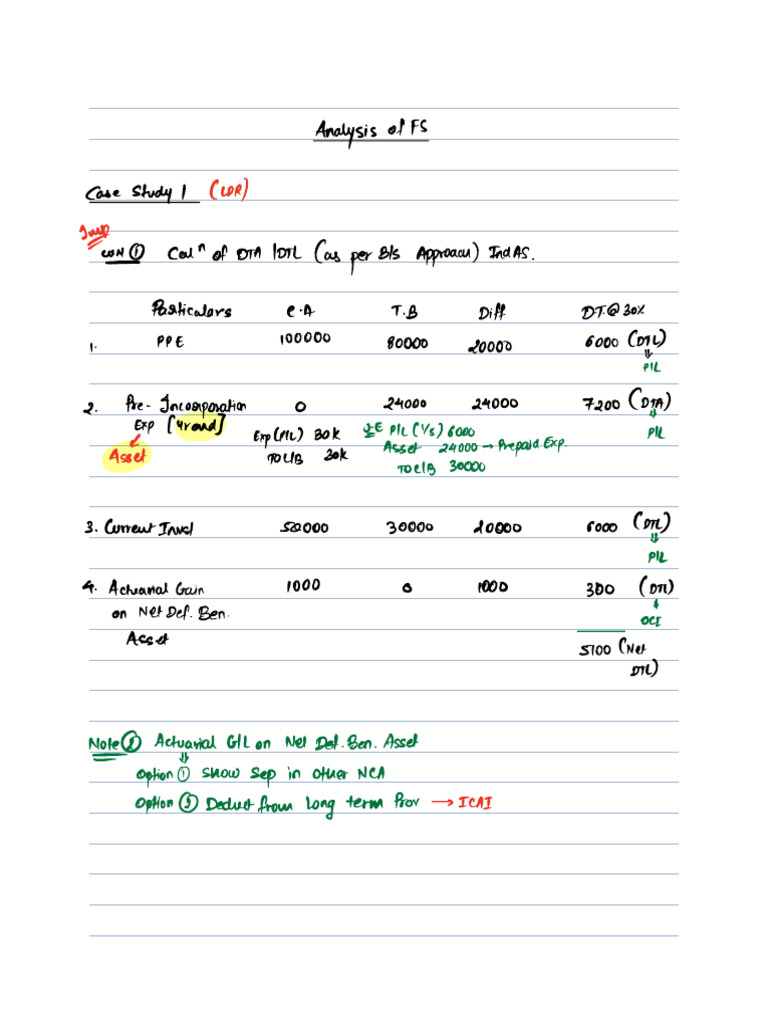 Analysis of FS
Case Study 1 (LDR)
Imp
CON ① Calⁿ of DTA/DTL (as per B/s Approach) IndAS.
Particulars C.A T.B Diff D.T.@ 30%
1. PPE 100000 80000 20000 6000 (DTL)
P/L
2. Pre-Incorporation 0 24000 24000 7200 (DTA)
Exp [4 round] Exp (P/L) 30k I.E P/L (1/5) 6000 P/L
Asset To C/B 30k Asset 24000 → Prepaid Exp.
To C/B 30000
3. Current Invst 50000 30000 20000 6000 (DTL)
P/L
4. Actuarial Gain 1000 0 1000 300 (DTL)
on Net Def. Ben. OCI
Asset 5100 (Net
DTL)
Note ② Actuarial G/L on Net Def. Ben. Asset
Option ① Show Sep in other NCA
Option ② Deduct from Long term Prov → ICAI